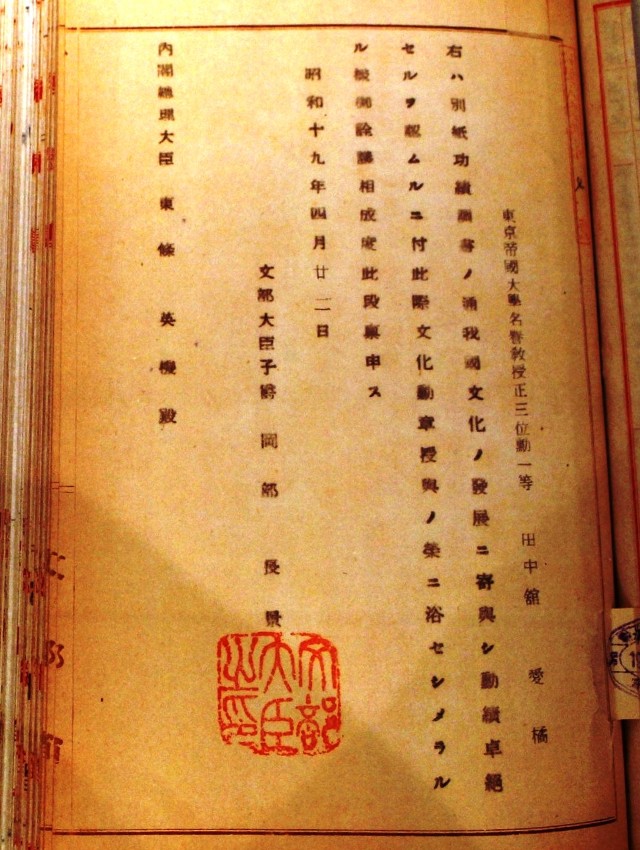 東京帝國大學名譽教授正三位勳一等 田中舘 愛橘
右ハ別紙功績調書ノ通我國文化ノ發展ニ寄與シ勳績卓絕
セルヲ認ムルニ付此際文化勳章授與ノ榮ニ浴セシメラル
ル樣御詮議相成度此段稟申ス
昭和十九年四月廿二日
文部大臣子爵 岡部 長景
文部
大臣
之印
內閣總理大臣 東條 英機殿
文部省